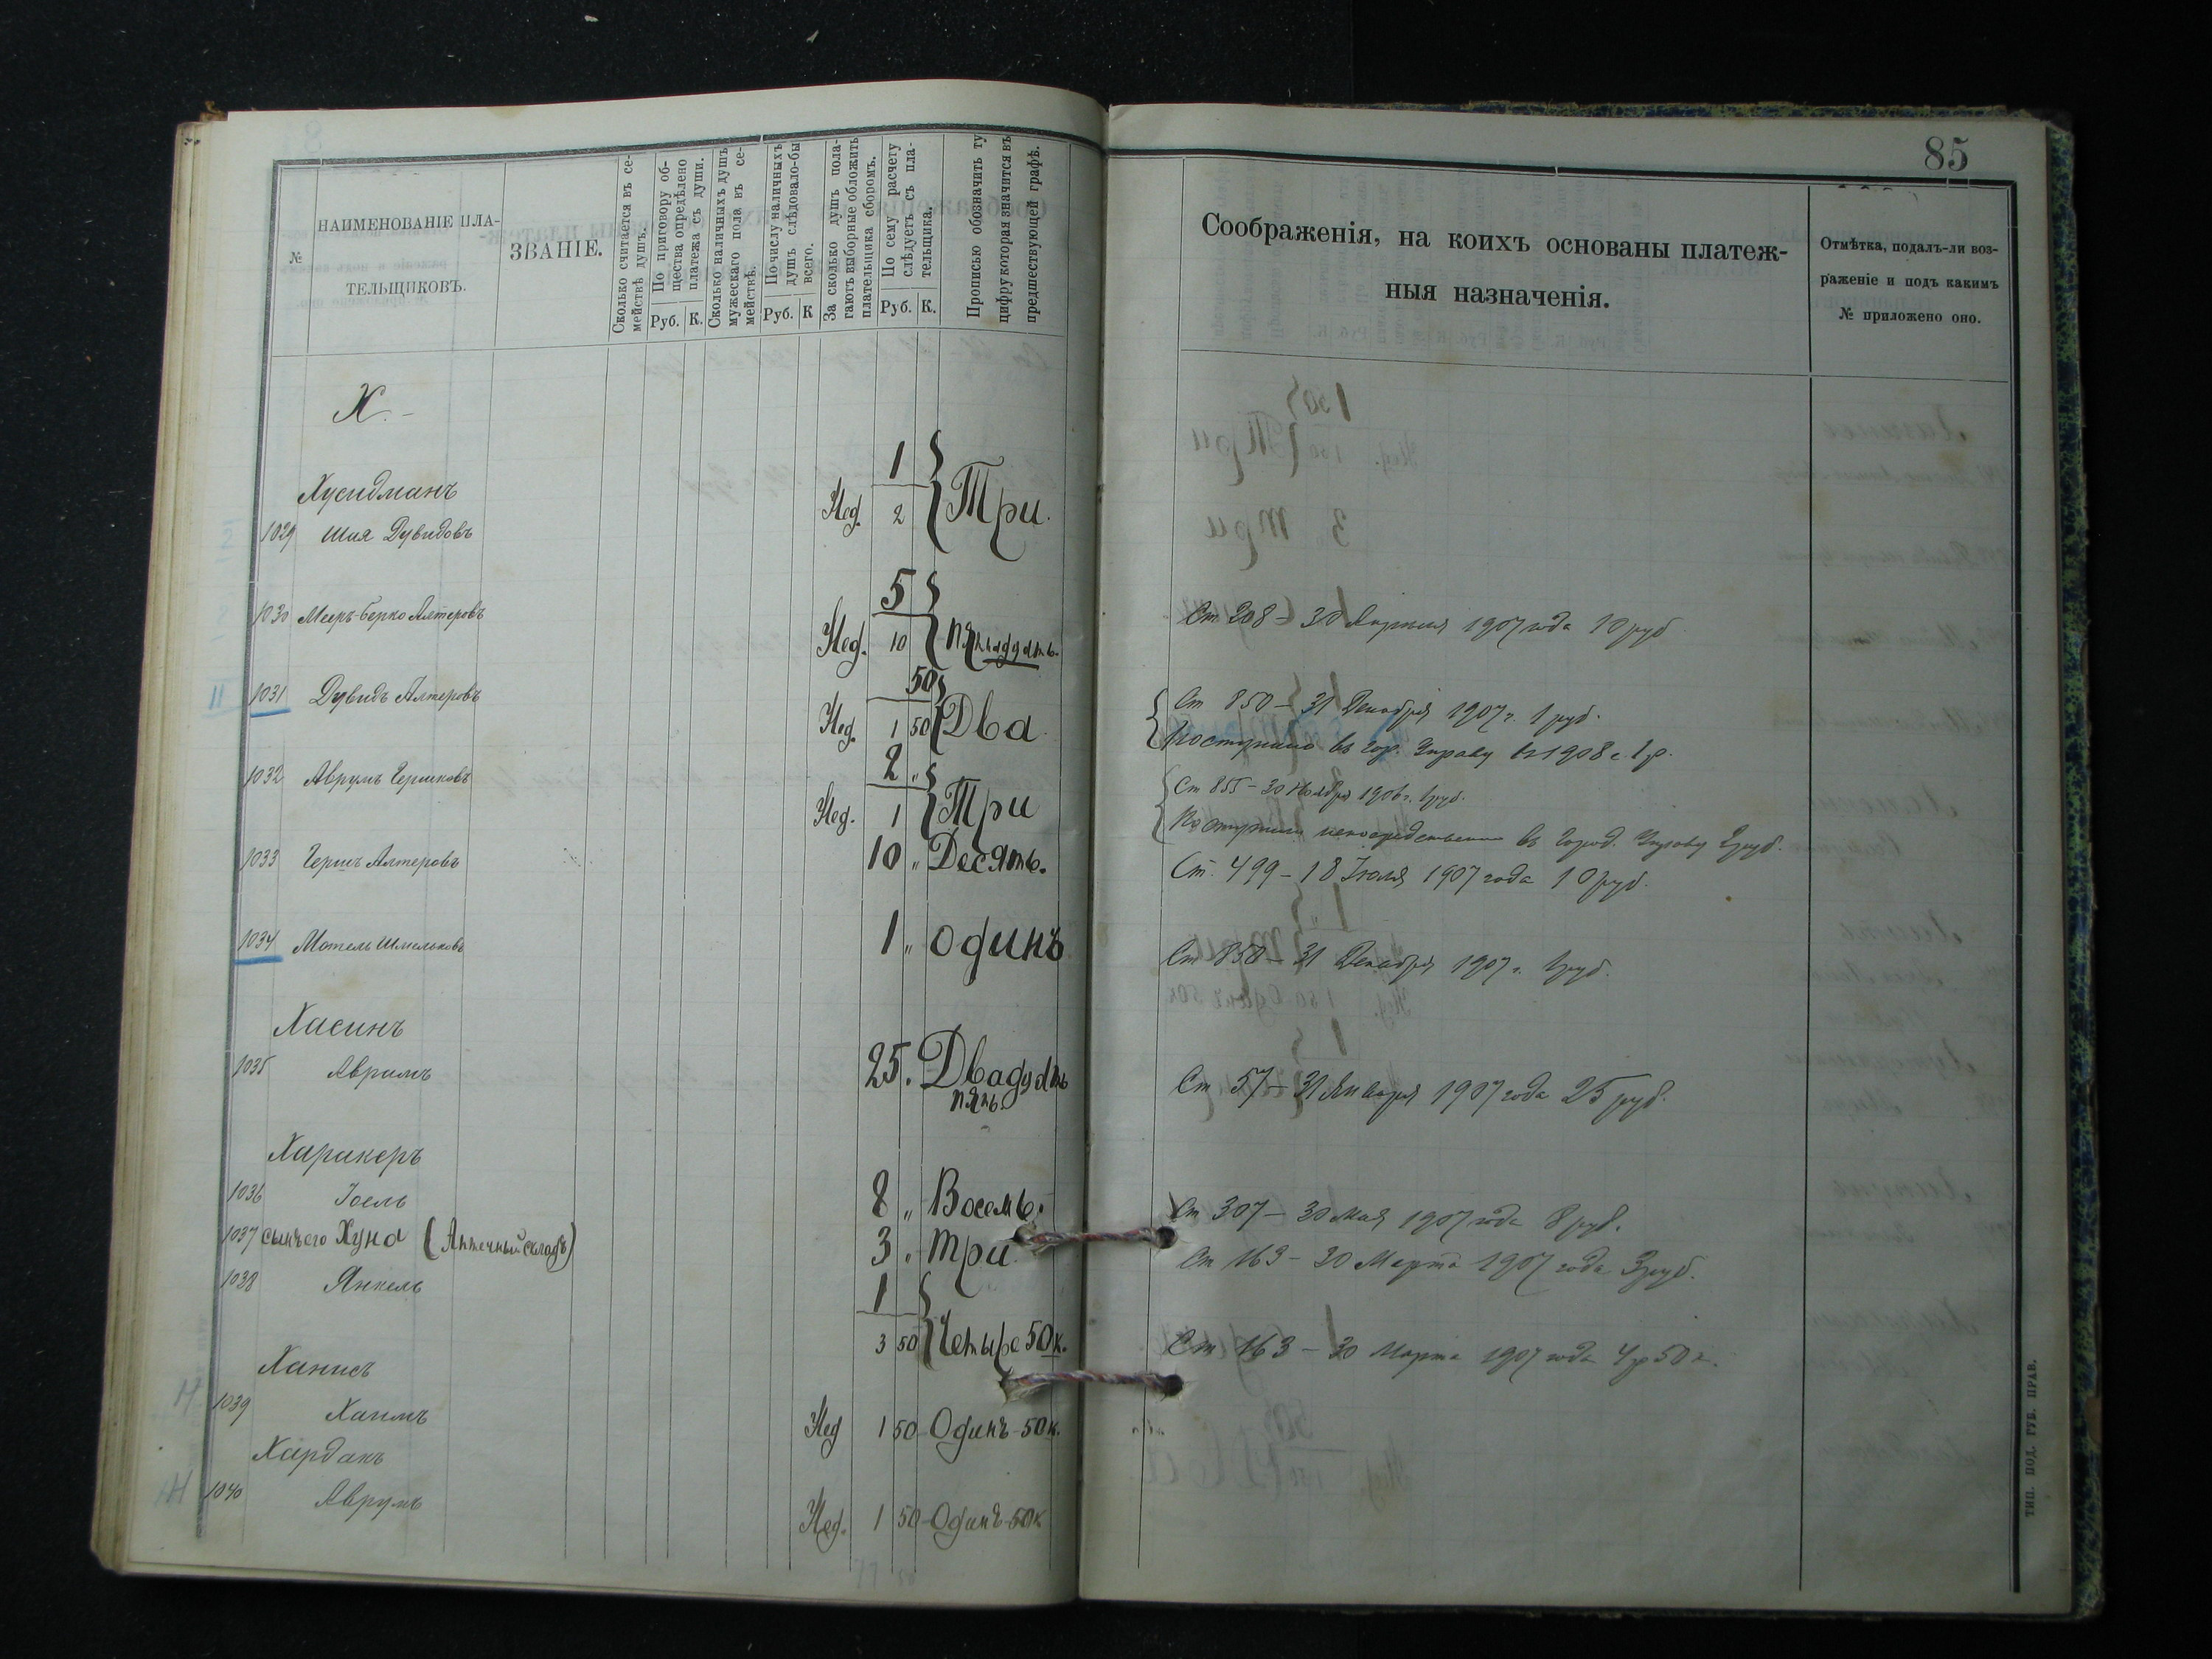 85
№
НАИМЕНОВАНІЕ ПЛА-
ТЕЛЬЩИКОВЪ.
ЗВАНІЕ.
Сколько считается въ се-
мействѣ душъ.
По приговору об-
щества опредѣлено
платежа съ души.
Руб. К.
Сколько наличныхъ душъ
мужескаго пола въ се-
мействѣ.
По числу наличныхъ
душъ слѣдовало-бы
всего.
Руб. К
За сколько душъ пола-
гаютъ выборные обложить
плательщика сборомъ.
По сему расчету
слѣдуетъ съ пла-
тельщика.
Руб. К.
Прописью обозначить ту
цифру которая значится въ
предшествующей графѣ.
Соображенія, на коихъ основаны платеж-
ныя назначенія.
Отмѣтка, подалъ-ли воз-
раженіе и подъ какимъ
№ приложено оно.
Х.-
Хусидманъ
1
1029 Шая Дувидовъ Нед. 2 Три.
5
1030 Мееръ-Берко Алтеровъ Нед. 10 Пятнадцать.
Ст 208 – 30 Апреля 1907 года 10 руб
50
11 1031 Дувидъ Алтеровъ Нед. 1 50 Два
Ст 850 – 31 Декабря 1907 г. 1 руб.
Поступило въ гор. Управу въ 1908 г. 1 р.
2 „
1032 Аврумъ Гершковъ Нед. 1 Три
Ст 855 – 30 Ноября 1906 г. 1 руб.
Поступило непосредственно въ Город. Управу 2 руб.
1033 Гершъ Алтеровъ 10 „ Десять.
Ст. 499 – 18 Іюля 1907 года 10 руб.
1034 Мотель Шмельковъ 1 „ одинъ
Ст 850 – 31 Декабря 1907 г. 1 руб.
Хасинъ
1035 Аврамъ 25. Двадцать
пять.
Ст 57 – 31 Января 1907 года 25 руб.
Харикеръ
1036 Іоель 8 „ Восемь.
Ст 307 – 30 Мая 1907 года 8 руб.
1037 сынъ его Хуна (Аптечный складъ) 3 „ три.
Ст 163 – 30 Марта 1907 года 3 руб.
1
1038 Янкель 3 50 Четыре 50 к.
Ст 163 – 30 Марта 1907 года 4 р 50 к.
Ханисъ
Н 1039 Хаимъ Нед 1 50 Одинъ 50 к.
Хардакъ
Н 1040 Аврумъ Нед. 1 50 Одинъ 50 к
77 50
ТИП. ПОД. ГУБ. ПРАВ.